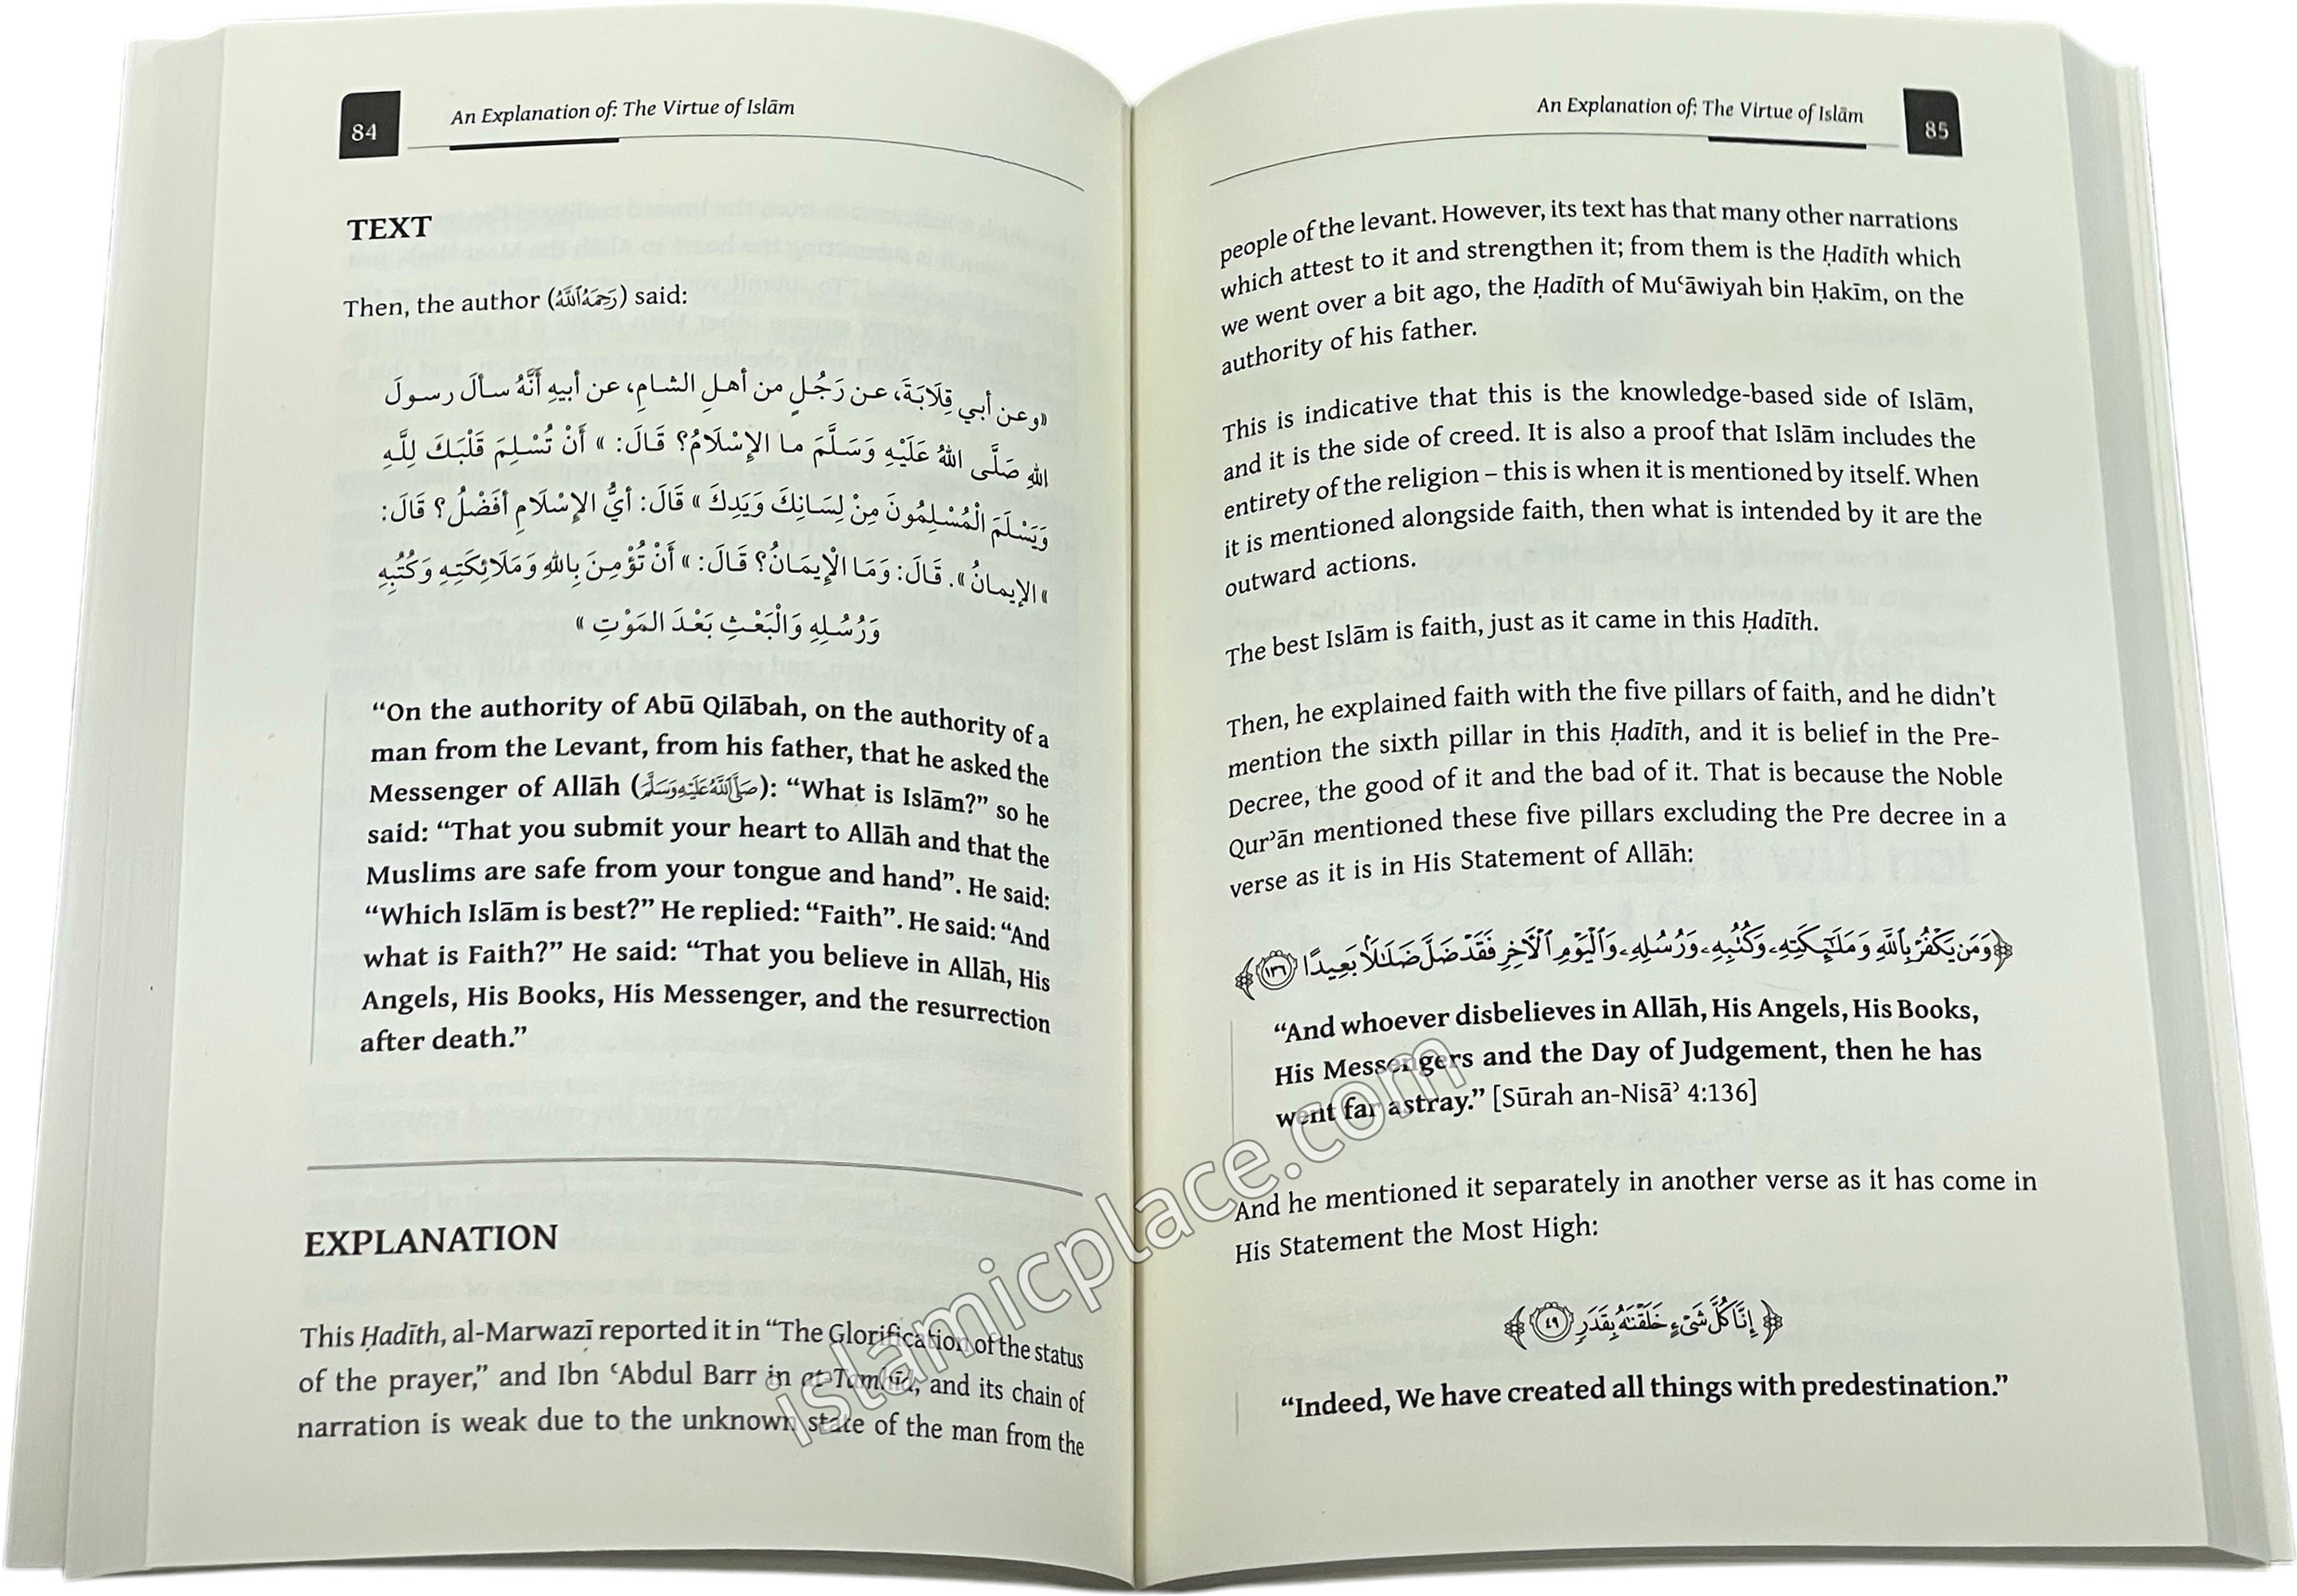 84
An Explanation of: The Virtue of Islām
TEXT
Then, the author (رَحِمَهُ ٱللَّهُ) said:
«وعن أبي قِلَابَةَ، عن رَجُلٍ من أهلِ الشامِ، عن أبيهِ أَنَّهُ سألَ رسولَ
اللهِ صَلَّى اللهُ عَلَيْهِ وَسَلَّمَ ما الإِسْلَامُ؟ قَالَ: » أَنْ تُسْلِمَ قَلْبَكَ لِلَّهِ
وَيَسْلَمَ الْمُسْلِمُونَ مِنْ لِسَانِكَ وَيَدِكَ » قَالَ: أيُّ الإِسْلَامِ أفَضْلُ؟ قَالَ:
» الإيمانُ». قَالَ: وَمَا الْإِيمَانُ؟ قَالَ: » أَنْ تُؤْمِنَ بِاللهِ وَمَلَائِكَتِهِ وَكُتُبِهِ
وَرُسُلِهِ وَالْبَعْثِ بَعْدَ المَوْتِ »
“On the authority of Abū Qilābah, on the authority of a
man from the Levant, from his father, that he asked the
Messenger of Allāh (صَلَّى ٱللَّهُ عَلَيْهِ وَسَلَّمَ): “What is Islām?” so he
said: “That you submit your heart to Allāh and that the
Muslims are safe from your tongue and hand”. He said:
“Which Islām is best?” He replied: “Faith”. He said: “And
what is Faith?” He said: “That you believe in Allāh, His
Angels, His Books, His Messenger, and the resurrection
after death.”
EXPLANATION
This Ḥadīth, al-Marwazī reported it in “The Glorification of the status
of the prayer,” and Ibn ʿAbdul Barr in at-Tamhīd, and its chain of
narration is weak due to the unknown state of the man from the
An Explanation of: The Virtue of Islām
85
people of the levant. However, its text has that many other narrations
which attest to it and strengthen it; from them is the Ḥadīth which
we went over a bit ago, the Ḥadīth of Muʿāwiyah bin Ḥakīm, on the
authority of his father.
This is indicative that this is the knowledge-based side of Islām,
and it is the side of creed. It is also a proof that Islām includes the
entirety of the religion – this is when it is mentioned by itself. When
it is mentioned alongside faith, then what is intended by it are the
outward actions.
The best Islām is faith, just as it came in this Ḥadīth.
Then, he explained faith with the five pillars of faith, and he didn’t
mention the sixth pillar in this Ḥadīth, and it is belief in the Pre-
Decree, the good of it and the bad of it. That is because the Noble
Qurʾān mentioned these five pillars excluding the Pre decree in a
verse as it is in His Statement of Allāh:
﴿وَمَن يَكْفُرْ بِٱللَّهِ وَمَلَـٰٓئِكَتِهِۦ وَكُتُبِهِۦ وَرُسُلِهِۦ وَٱلْيَوْمِ ٱلْـَٔاخِرِ فَقَدْ ضَلَّ ضَلَـٰلًۢا بَعِيدًا ١٣٦﴾
“And whoever disbelieves in Allāh, His Angels, His Books,
His Messengers and the Day of Judgement, then he has
went far astray.” [Sūrah an-Nisāʾ 4:136]
And he mentioned it separately in another verse as it has come in
His Statement the Most High:
﴿إِنَّا كُلَّ شَىْءٍ خَلَقْنَـٰهُ بِقَدَرٍ ٤٩﴾
“Indeed, We have created all things with predestination.”
islamicplace.com